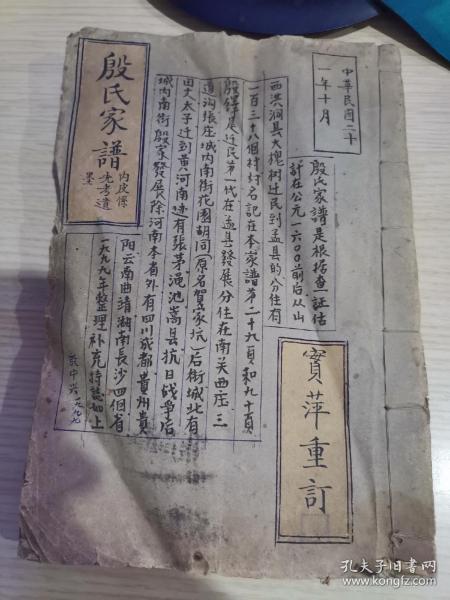 中華民國二十
一年十月
殷氏家譜是根据查証估
計在公元一六00前后从山
西洪洞县大槐树迁民到孟县的分住有
一百三十八個村村名記在本家譜第二十九頁和九十頁
殷鐸是迁民第一代在孟县發展分住在南关西庄三
道沟張庄城内南街花園胡同(原名賀家坑)后街城北有
田丈太子迁到黄河南迹有張茅渑池嵩县抗日战争后
城内南街殷家發展除河南本省外有四川成都貴州貴
阳云南曲靖湖南長沙四個省
一九九九年整理补充特誌如上
殷氏家譜
内皮傳
先考遺
墨
寶萍重訂
孔夫子旧书网
www.kongfz.com